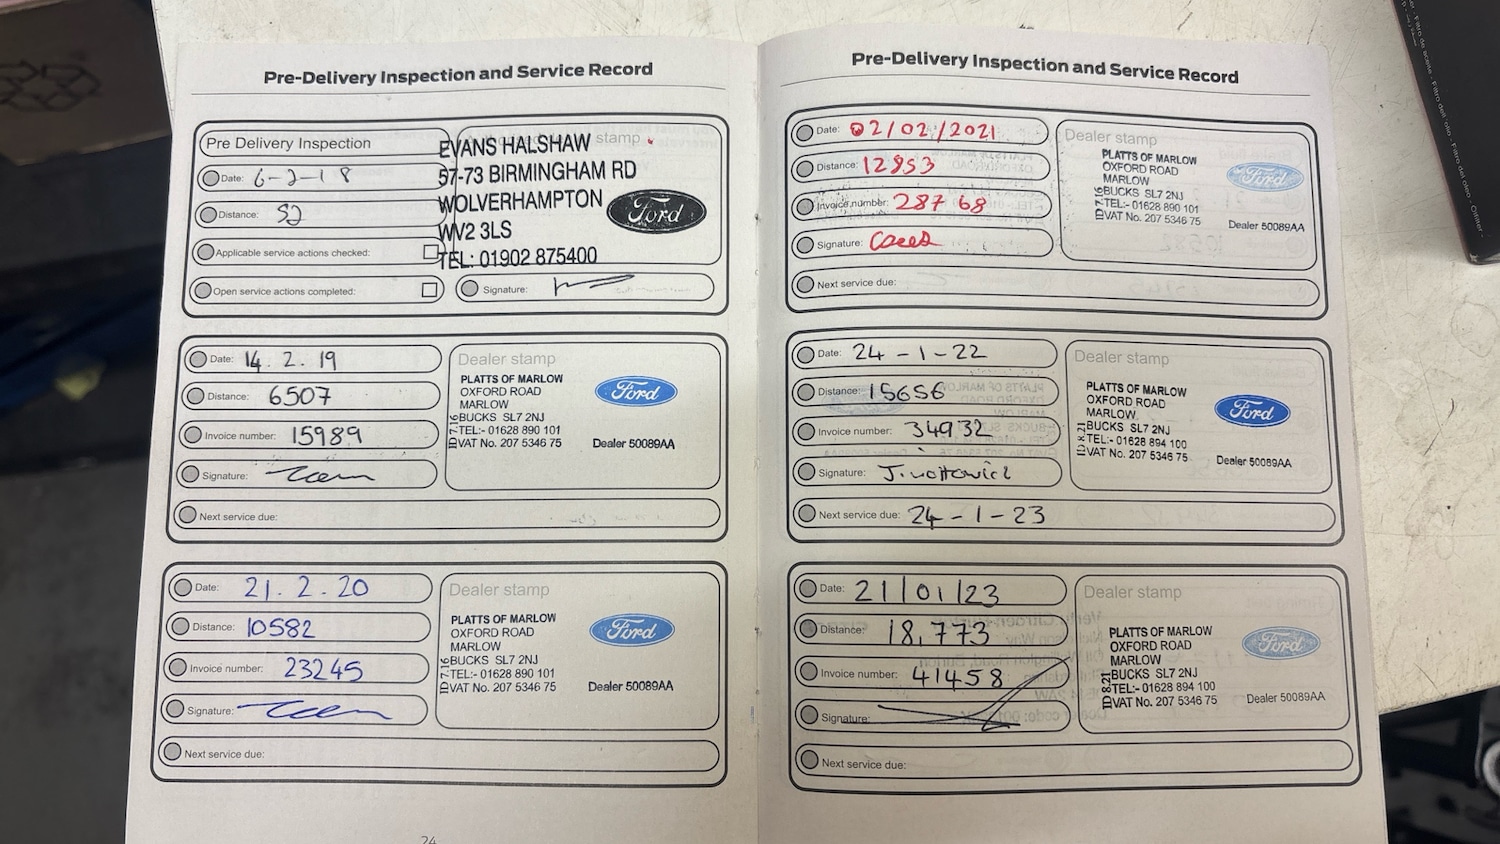 Pre-Delivery Inspection and Service Record
Pre Delivery Inspection
Date: 6-2-18
Distance: 52
Applicable service actions checked:
Open service actions completed:
stamp
EVANS HALSHAW
57-73 BIRMINGHAM RD
WOLVERHAMPTON
WV2 3LS
TEL: 01902 875400
Ford
Signature:
Date: 14.2.19
Distance: 6507
Invoice number: 15989
Signature:
Next service due:
Dealer stamp
PLATTS OF MARLOW
OXFORD ROAD
MARLOW
BUCKS SL7 2NJ
TEL:- 01628 890 101
VAT No. 207 5346 75
ID 7.16
Ford
Dealer 50089AA
Date: 21.2.20
Distance: 10582
Invoice number: 23245
Signature:
Next service due:
Dealer stamp
PLATTS OF MARLOW
OXFORD ROAD
MARLOW
BUCKS SL7 2NJ
TEL:- 01628 890 101
VAT No. 207 5346 75
ID 7.16
Ford
Dealer 50089AA
24
Pre-Delivery Inspection and Service Record
Date: 02/02/2021
Distance: 12853
Invoice number: 28768
Signature:
Next service due:
Dealer stamp
PLATTS OF MARLOW
OXFORD ROAD
MARLOW
BUCKS SL7 2NJ
TEL:- 01628 890 101
VAT No. 207 5346 75
ID 7.16
Ford
Dealer 50089AA
Date: 24-1-22
Distance: 15656
Invoice number: 34932
Signature:
Next service due: 24-1-23
Dealer stamp
PLATTS OF MARLOW
OXFORD ROAD
MARLOW
BUCKS SL7 2NJ
TEL:- 01628 894 100
VAT No. 207 5346 75
ID 8.21
Ford
Dealer 50089AA
Date: 21/01/23
Distance: 18,773
Invoice number: 41458
Signature:
Next service due:
Dealer stamp
PLATTS OF MARLOW
OXFORD ROAD
MARLOW
BUCKS SL7 2NJ
TEL:- 01628 894 100
VAT No. 207 5346 75
ID 8.21
Ford
Dealer 50089AA